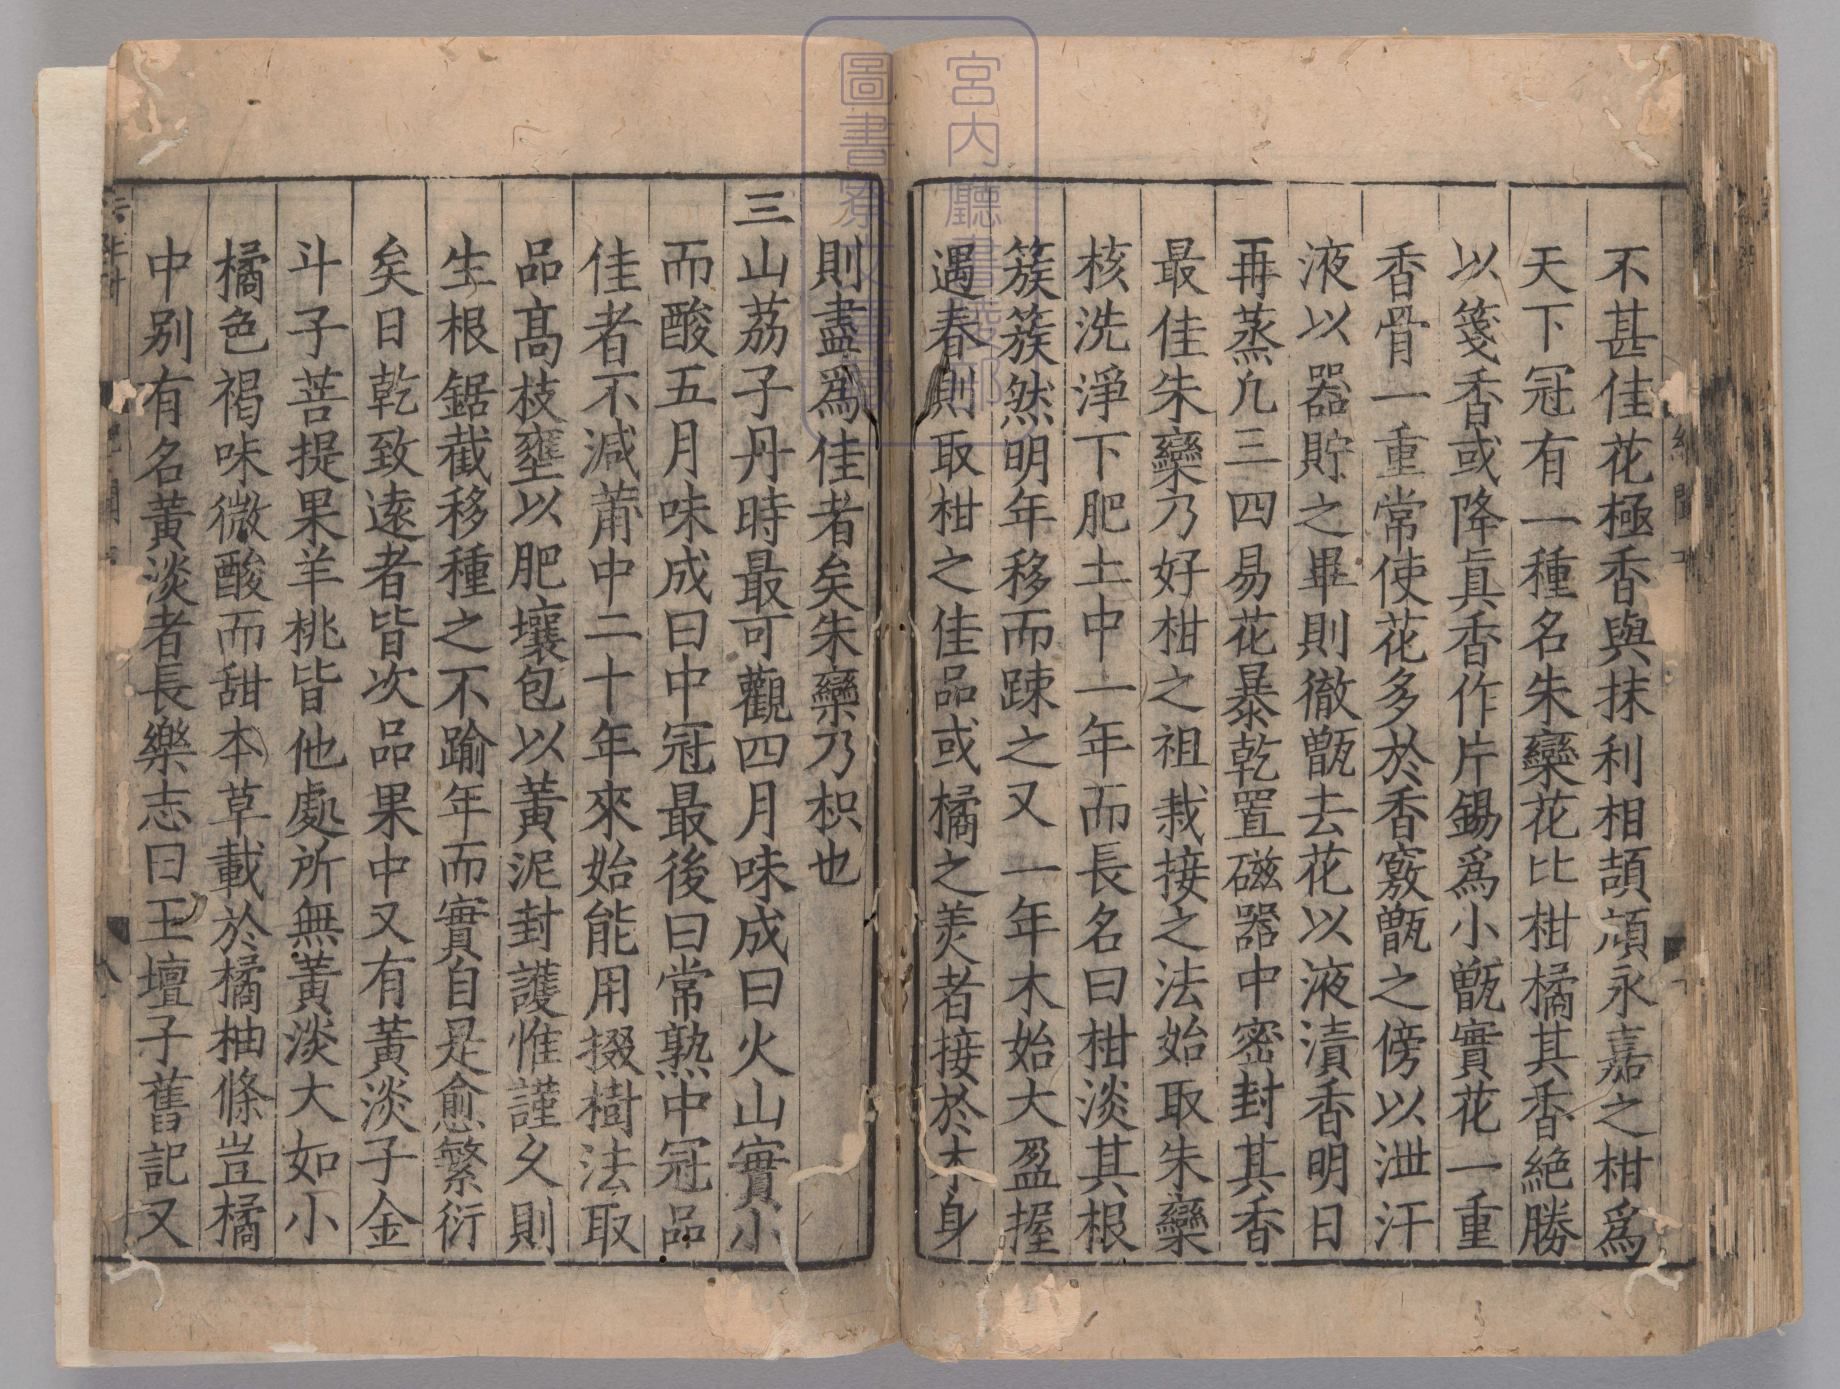 不甚佳花極香與抹利相頡頏永嘉之柑爲
天下冠有一種名朱欒花比柑橘其香絶勝
以箋香或降眞香作片錫爲小甑實花一重
香骨一重常使花多於香竅甑之傍以泄汗
液以器貯之畢則徹甑去花以液漬香明日
再蒸凢三四易花暴乾置磁器中密封其香
最佳朱欒乃好柑之祖栽接之法始取朱欒
核洗淨下肥土中一年而長名曰柑淡其根
簇簇然明年移而踈之又一年木始大盈握
遇春則取柑之佳品或橘之羙者接於木身
則盡爲佳者矣朱欒乃枳也
三山荔子丹時最可觀四月味成曰火山實小
而酸五月味成曰中冠最後曰常熟中冠品
佳者不減莆中二十年來始能用掇樹法取
品髙枝壅以肥壤包以黃泥封護惟謹久則
生根鋸截移種之不踰年而實自是愈繁衍
矣日乾致遠者皆次品果中又有黃淡子金
斗子菩提果羊桃皆他處所無黃淡大如小
橘色褐味微酸而甜本草載於橘柚條豈橘
中別有名黃淡者長樂志曰王壇子舊記又
宮內廳書陵部
圖書寮文庫藏